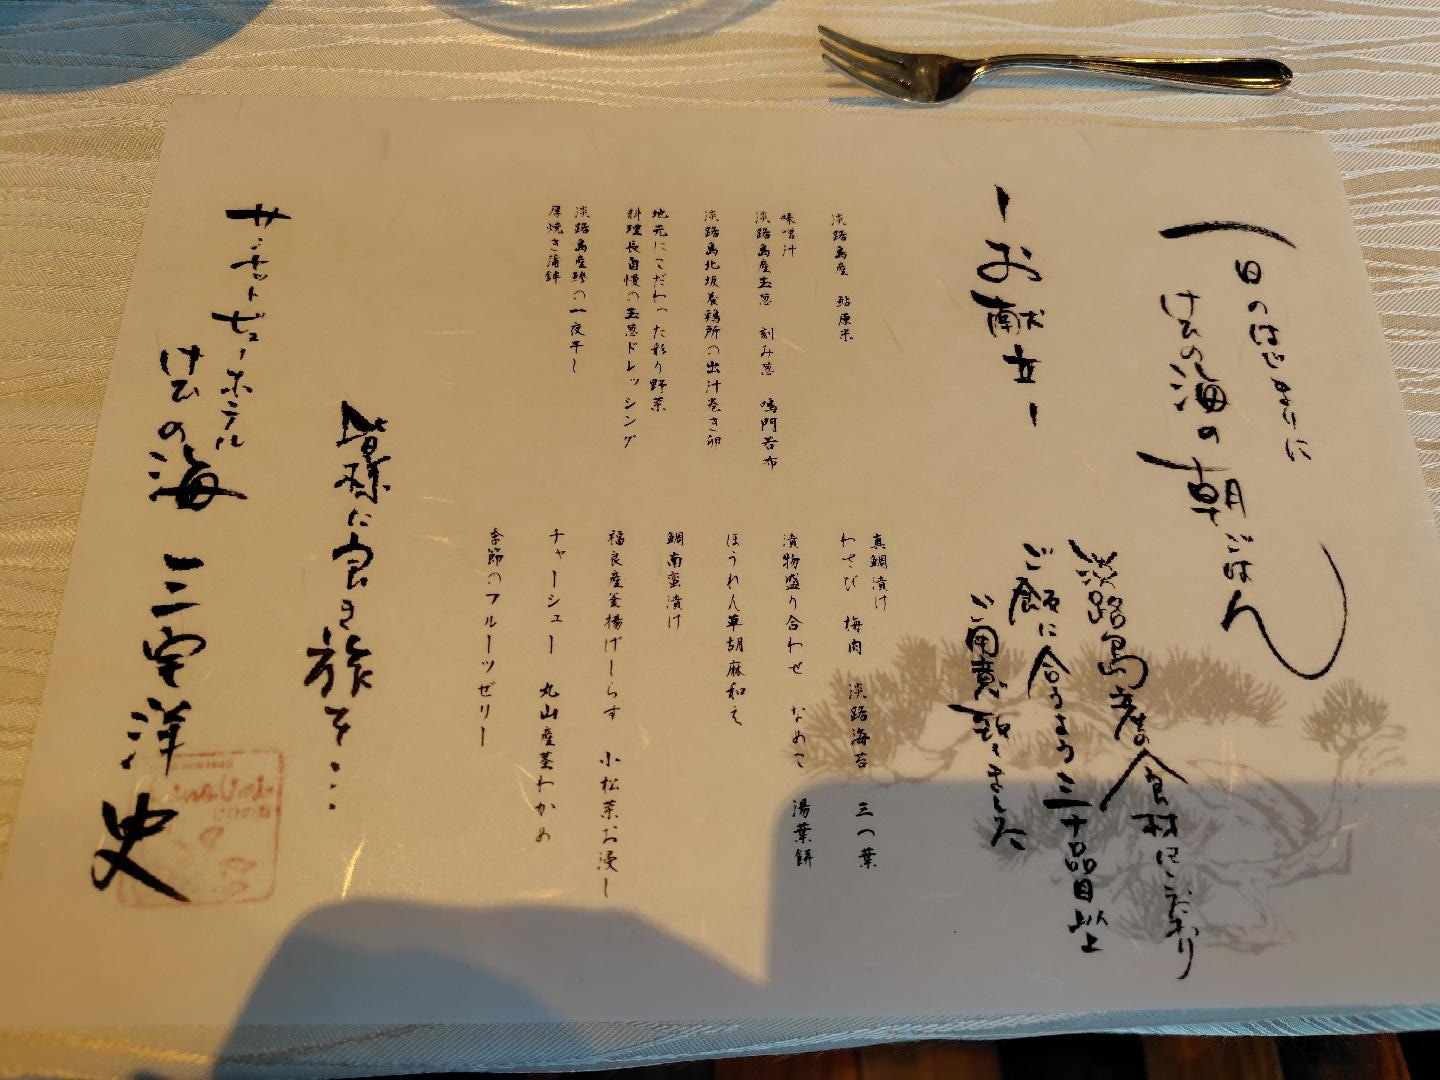 一日のはじまりに
けひの海の朝ごはん
淡路島産の食材にこだわり
ご飯に合うよう三十品目以上
ご用意致しました
ーお献立ー
淡路島産 鮎原米
味噌汁
淡路島産玉葱 刻み葱 鳴門若布
淡路島北坂養鶏所の出汁巻き卵
地元にこだわった彩り野菜
料理長自慢の玉葱ドレッシング
淡路島産鯵の一夜干し
厚焼き蒲鉾
真鯛漬け
わさび 梅肉 淡路海苔 三つ葉
漬物盛り合わせ なめこ 湯葉餅
ほうれん草胡麻和え
鯛南蛮漬け
福良産釜揚げしらす 小松菜お浸し
チャーシュー 丸山産茎わかめ
季節のフルーツゼリー
皆様に良き旅を・・・
サンセットビューホテル
けひの海 三宅洋史